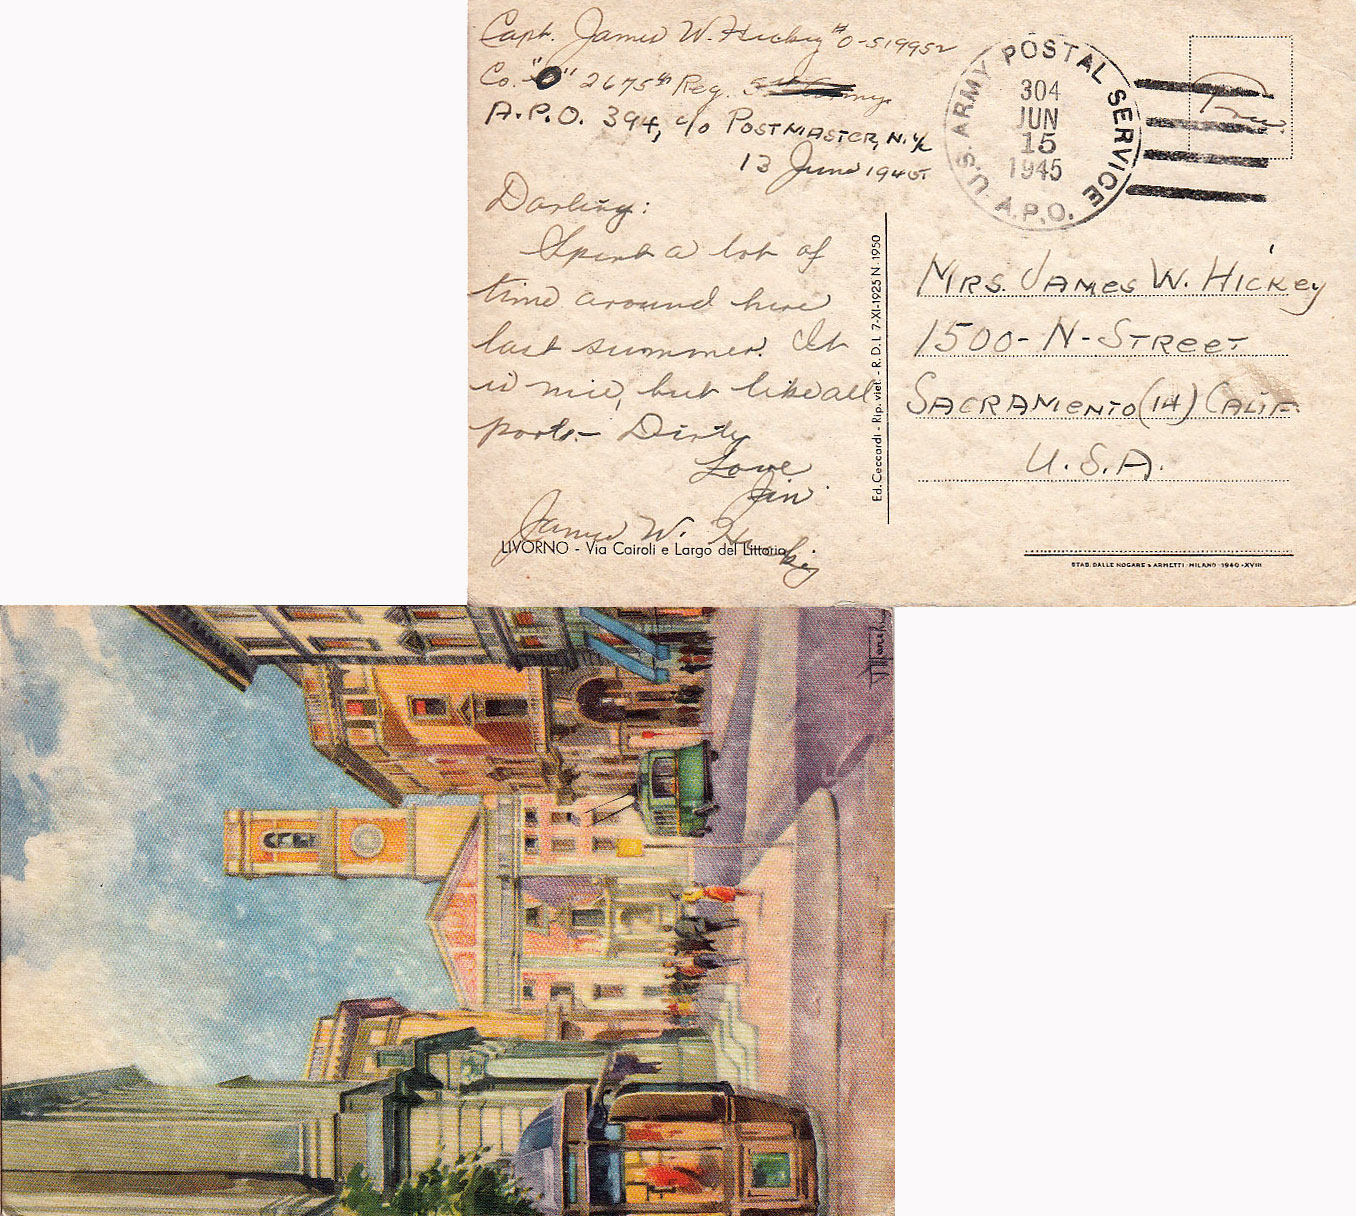 Capt. James W. Hickey #O-519952
Co. "O" 2675th Reg.
A.P.O. 394, c/o Postmaster, N.Y.
13 June 1945
Darling:
Spent a lot of
time around here
last summer. It
is nice, but like all
ports - Dirty
Love
Jim
James W. Hickey
LIVORNO - Via Cairoli e Largo del Littorio
Ed. Ceccardi - Rip. viet. - R. D. L. 7-XI-1925 N. 1950
U.S. ARMY POSTAL SERVICE
304
JUN
15
1945
A.P.O.
Free
Mrs. James W. Hickey
1500 - N - Street
Sacramento (14) Calif.
U.S.A.
STAB. DALLE NOGARE & ARMETTI - MILANO - 1940 - XVIII